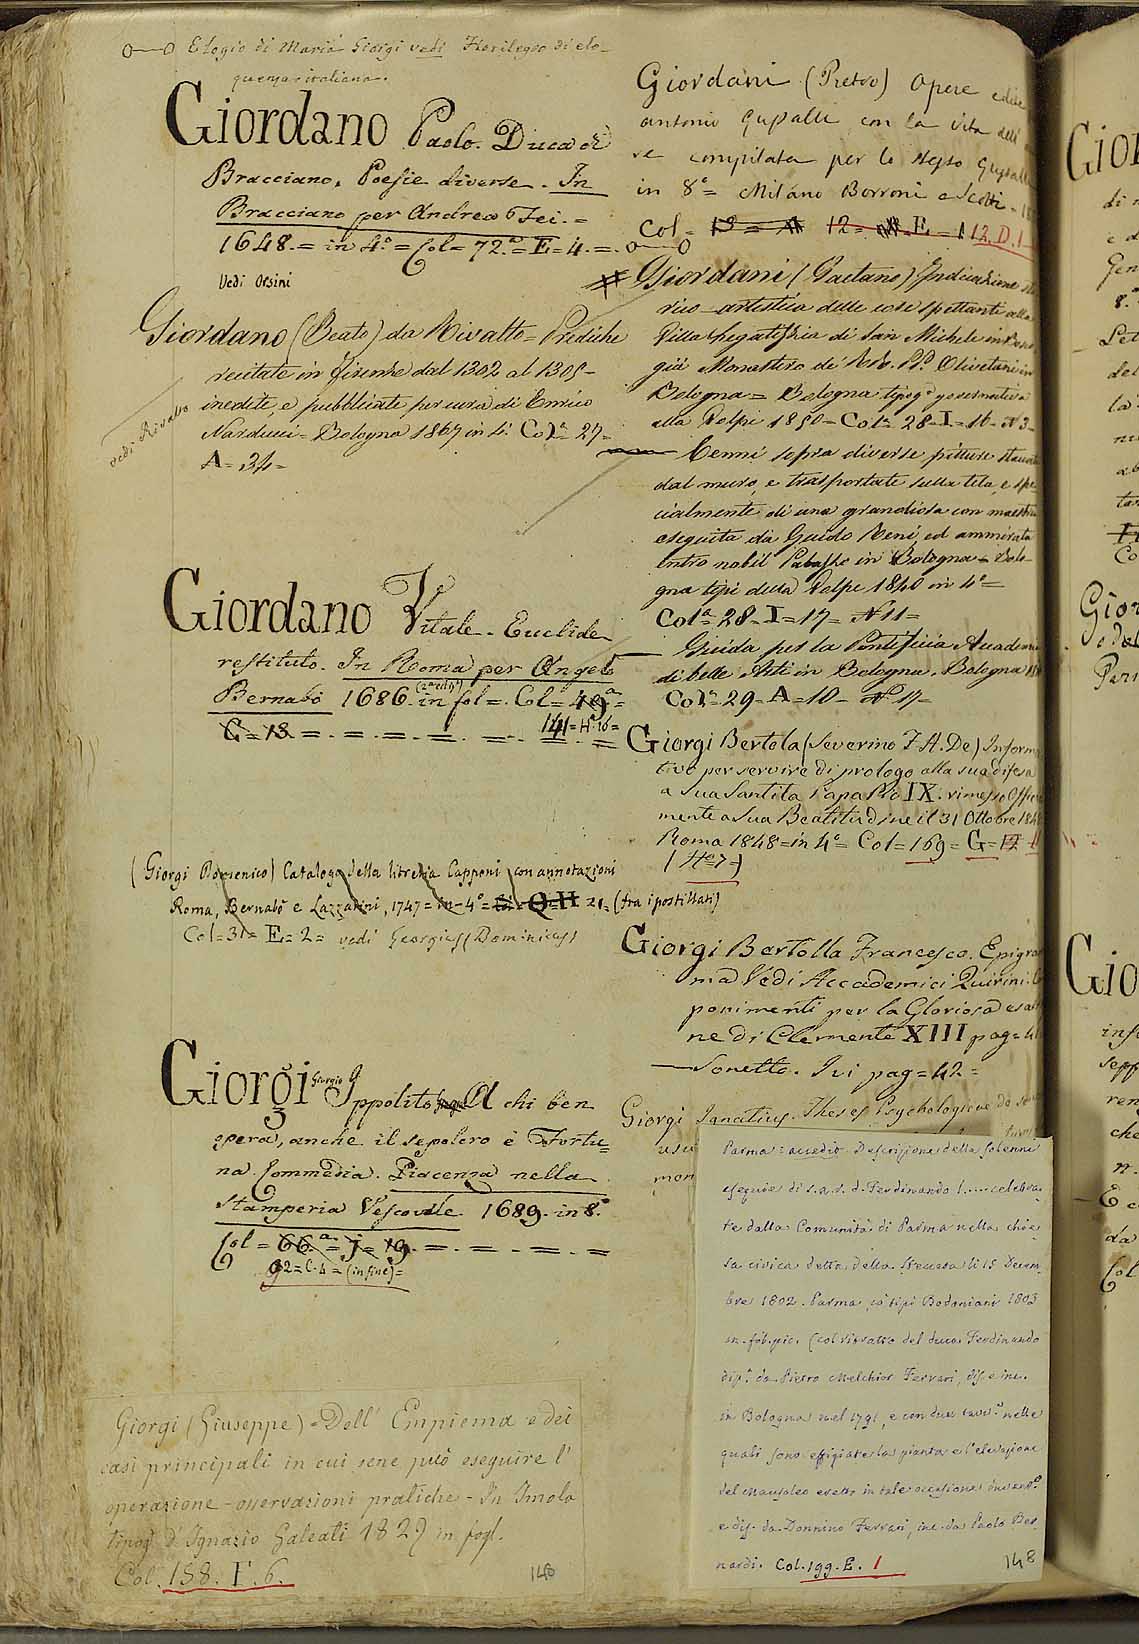 Elogio di Maria Giorgi vedi Florilegio di elo-
quenza italiana.
Giordano Paolo. Duca di
Bracciano. Poesie diverse. In
Bracciano per Andrea Fei. =
1648. = in 4.° = Col = 72.ª = E = 4. =
Vedi Orsini
Giordano (Beato) da Rivalto = Prediche
recitate in Firenze dal 1302 al 1305 -
inedite, e pubblicate per cura di Enrico
Narducci = Bologna 1867 in 4.° Col.ª 27 =
A = 34 =
vedi Rivalto
Giordano Vitale. Euclide
restituto. In Roma per Angelo
Bernabò 1686. (2ª edⁿ) in fol = Col = 49ª =
C = 13 = = = = = = 141 = H = 16 =
(Giorgi Domenico) Catalogo della libreria Capponi con annotazioni
Roma, Bernabò e Lazzarini, 1747 = in - 4° = Q H 21 = (tra i postillati)
Col = 31 = E = 2 = vedi Georgius (Dominicus)
Giorgi Giorgio Ippolito A chi ben
opera, anche il sepolcro è Fortu=
na Commedia. Piacenza nella
Stamperia Vescovale 1689. in 8.°
Col = 66.ª = J = 19. = = = = =
92 = C. 4 = (in fine) =
Giorgi (Giuseppe) - Dell' Empiema e dei
casi principali in cui sene può eseguire l'
operazione - osservazioni pratiche - In Imola
tipog. D' Ignazio Galeati 1829 in fogl.
Col. 158. F. 6.
148
Giordani (Pietro) Opere edite
Antonio Gussalli con la vita dell
re compilata per lo stesso Gussalli
in 8° = Milano Borroni e Scotti -
Col = 12 = E = 1 12. D. 1
Giordani (Gaetano) Indicazione
rico-artistica delle cose spettanti alla
Villa Legatizia di San Michele in Bosco
già Monastero de' RR. PP. Olivetani in
Bologna = Bologna tipog.ª governativa
alla Volpe 1850 = Col.ª 28 = I = 16 - N 3 -
Cenni sopra diverse pitture staccate
dal muro, e trasportate sulla tela, e spe
cialmente di una grandiosa con maestria
eseguita da Guido Reni, ed ammirata
entro nobil Palazzo in Bologna = Bolo-
gna tipi della Volpe 1840 in 4° =
Col.ª 28 = I = 17 = N 11 =
Guida per la Pontificia Accademia
di belle Arti in Bologna. Bologna
Col.ª 29 = A = 10 =
Giorgi Bertola (Severino F. A. De) Informa
tivo per servire di prologo alla sua difesa
a Sua Santità Papa Pio IX. rimesso Officia
mente a Sua Beatitudine il 31 Ottobre 1848
Roma 1848 = in 4° Col = 169 = G =
Giorgi Bertolla Francesco. Epigram
ma Vedi Accademici Quirini. Com
ponimenti per la Gloriosa esalt
ne di Clemente XIII pag = 41
Sonetto. Ivi pag = 42 =
Giorgi Ignatius. Theses Psychologicae de
usu
mon
Parma: accedio. Descrizione della solenni
esequie di s. a. r. d. Ferdinando I..... celebra-
te dalla Comunità di Parma nella chie-
sa civica detta della Steccata li 15 Decem-
bre 1802. Parma, co' tipi Bodoniani 1803
in-fol. pic. (col ritratto del duca Ferdinando
dip.° da Pietro Melchior Ferrari, dis. e inc.
in Bologna nel 1791, e con due tav.ᵉ nelle
quali sono effigiate la pianta e l'elevazione
del Mausoleo eretto in tale occasione
e dis. da Donnino Ferrari, inc. da Paolo Ber-
nardi. Col. 199. E. 1
148